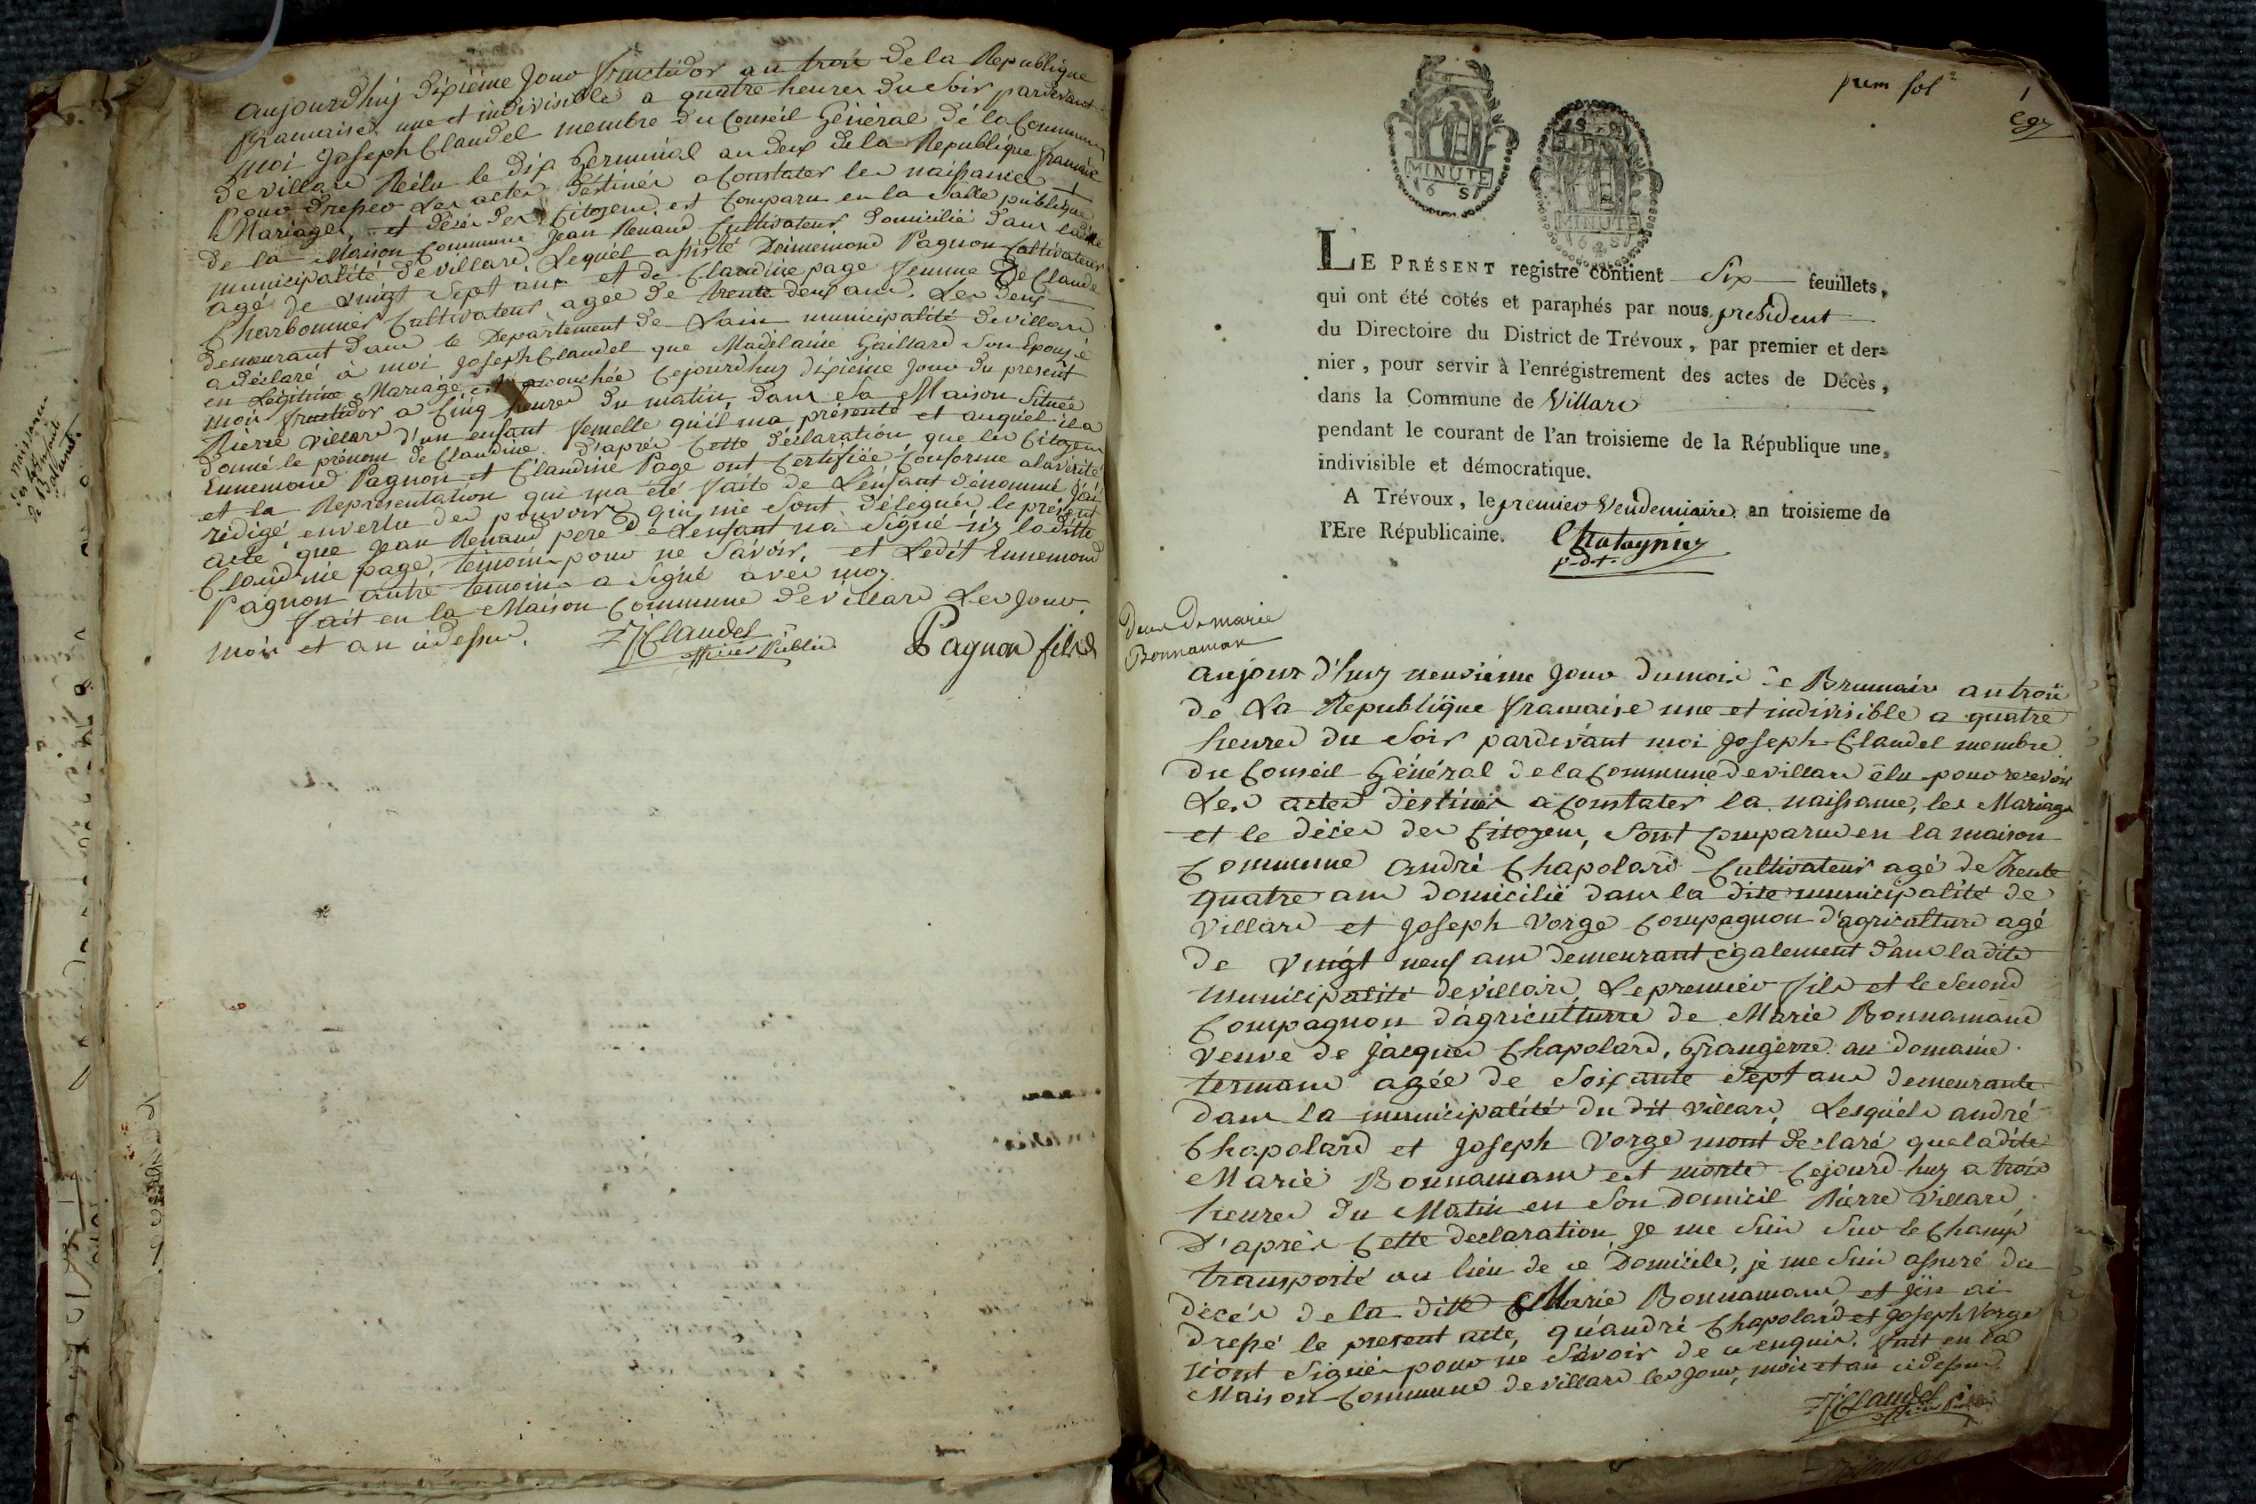 aujourdhuj dixième Jour fructidor an trois de la Republique
francaise une et indivisible a quatre heures du soir pardevant
moi Joseph Claudel membre du Conseil Général de la Commune
de villars Réélu le dix Germinal an deux de la Republique francaise
pour dresser les actes destinés a Constater les naissances
Mariages et décés des Citoyens est Comparu en la salle publique
de la Maison Commune Jean Renaud Cultivateur domicilié dans ladite
municipalité de villars, Lequél assisté Dennemond Pagnon Cultivateur
agé de vingt sept ans et de Claudine page femme de Claude
Charbonnier Cultivateur agée de trente deux ans. Les deux
demeurant dans le Departement de Lain municipalité de villars
a déclaré a moi Joseph Claudel que Madelaine Gaillard son Epouse
en Légitime Mariage est accouchée Cejourdhuy dixiéme Jour du present
mois fructidor a Cinq heures du matin dans sa Maison située
Riere villars d'un enfant femelle quil ma présenté et auquel il a
donné le prénom de Claudine. d'après Cette déclaration que les Citoyens
Ennemond Pagnon et Claudine Page ont Certifiée Conforme a la vérité
et la Représentation qui ma été faite de L'énfant dénommé J'ai
rédigé en vertu des pouvoirs qui me sont délégués le présent
acte que Jean Renaud pere de Lenfant na signé n'y la ditte
Claudine page, temoins pour ne savoir, et Ledit Ennemond
Pagnon autre temoins a Signé avéc moy.
fait en la Maison Commune de Villars Les Jour
mois et an cidessus.
JClaudel
officier Public
Pagnon fils
prem fol
1
MINUTE
6 S
MINUTE
6 S
LE PRÉSENT registre contient Six feuillets,
qui ont été cotés et paraphés par nous president
du Directoire du District de Trévoux, par premier et der-
nier, pour servir à l'enrégistrement des actes de Décès,
dans la Commune de Villars
pendant le courant de l'an troisieme de la République une,
indivisible et démocratique.
A Trévoux, le premier Vendemiaire an troisieme de
l'Ere Républicaine.
p.d.t.
Deces de marie
Bonnaman
aujourd'huy neuvieme Jour du mois de Brumaire an trois
de La Republique francaise une et indivisible a quatre
heures du Soir pardevant moi Joseph Claudel membre
du Conseil Général de la Commune de villars élu pour recevoir
Les actes destinés a constater la naissance, les Mariages
et le décés des Citoyens, sont comparus en la maison
Commune andré Chapolard Cultivateur agé de trente
quatre ans domicilié dans la dite municipalité de
Villars et Joseph Vorge compagnon d'agriculture agé
de vingt neuf ans demeurant également dans ladite
municipalité de villars, Le premier fils et le second
Compagnon d'agriculturre de Marie Bonnamans
veuve de Jacques Chapolard, Grangerre au domaine
termans agée de soixante sept ans demeurante
dans la municipalité du dit villars, Lesquéls andré
Chapolard et Joseph Vorge mont declaré que ladite
Marie Bonnamans est morte Cejourd huy a trois
heures du Matin en son domicil Rierre villars,
D'aprés Cette declaration Je me suis sur le Champ
transporté au lieu de ce Domicile, je me suis assuré du
décés de la ditte Marie Bonnamans, et j'en ai
dressé le present acte, qu'andré Chapolard et Joseph Vorge
n'ont signés pour ne savoir de ce enquis. fait en la
Maison Commune de villars les Jour, mois et an cidessus.
JClaudel
officier Public